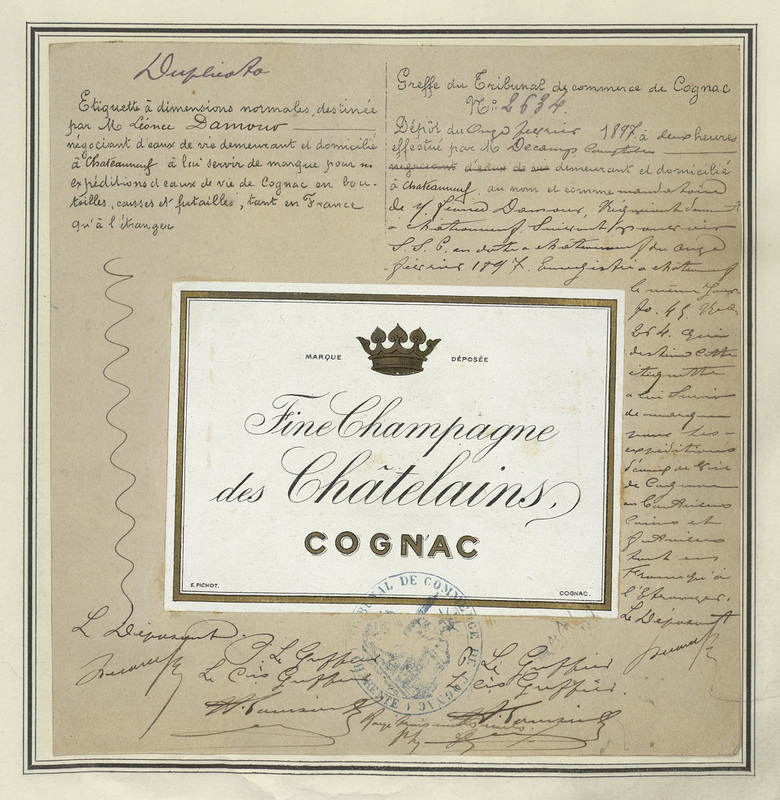 Duplicata
Etiquette à dimensions normales, destinée
par M Léonce Damour
négociant d'eaux de vie demeurant et domicilié
à Chateauneuf à lui servir de marque pour ses
expéditions d'eaux de vie de Cognac en bou-
teilles, caisses et futailles, tant en France
qu'à l'étranger
Greffe du Tribunal de commerce de Cognac
N° 2634
Dépôt du onze février 1897 à deux heures
effectué par M Decamp
négociant d'eaux de vie demeurant et domicilié
à Chateauneuf, au nom et comme mandataire
de Damour,
à Chateauneuf, Suivant pouvoir
S.S.P. en date à Chateauneuf du onze
février 1897. Enregistré à Chateauneuf
le même jour
fo. 45
264. qui
destine cette
étiquette
à lui servir
de marque
pour ses
expéditions
d'eaux de vie
de Cognac
en
caisses et
futailles
tant en
France qu'à
l'Etranger.
Le Déposant
MARQUE DÉPOSÉE
Fine Champagne
des Châtelains
COGNAC
E. PICHOT. COGNAC.
TRIBUNAL DE COMMERCE DE COGNAC
CHARENTE
Le Déposant
P. Le Greffier
Le Cis Greffier
P. Le Greffier
Le Cis Greffier